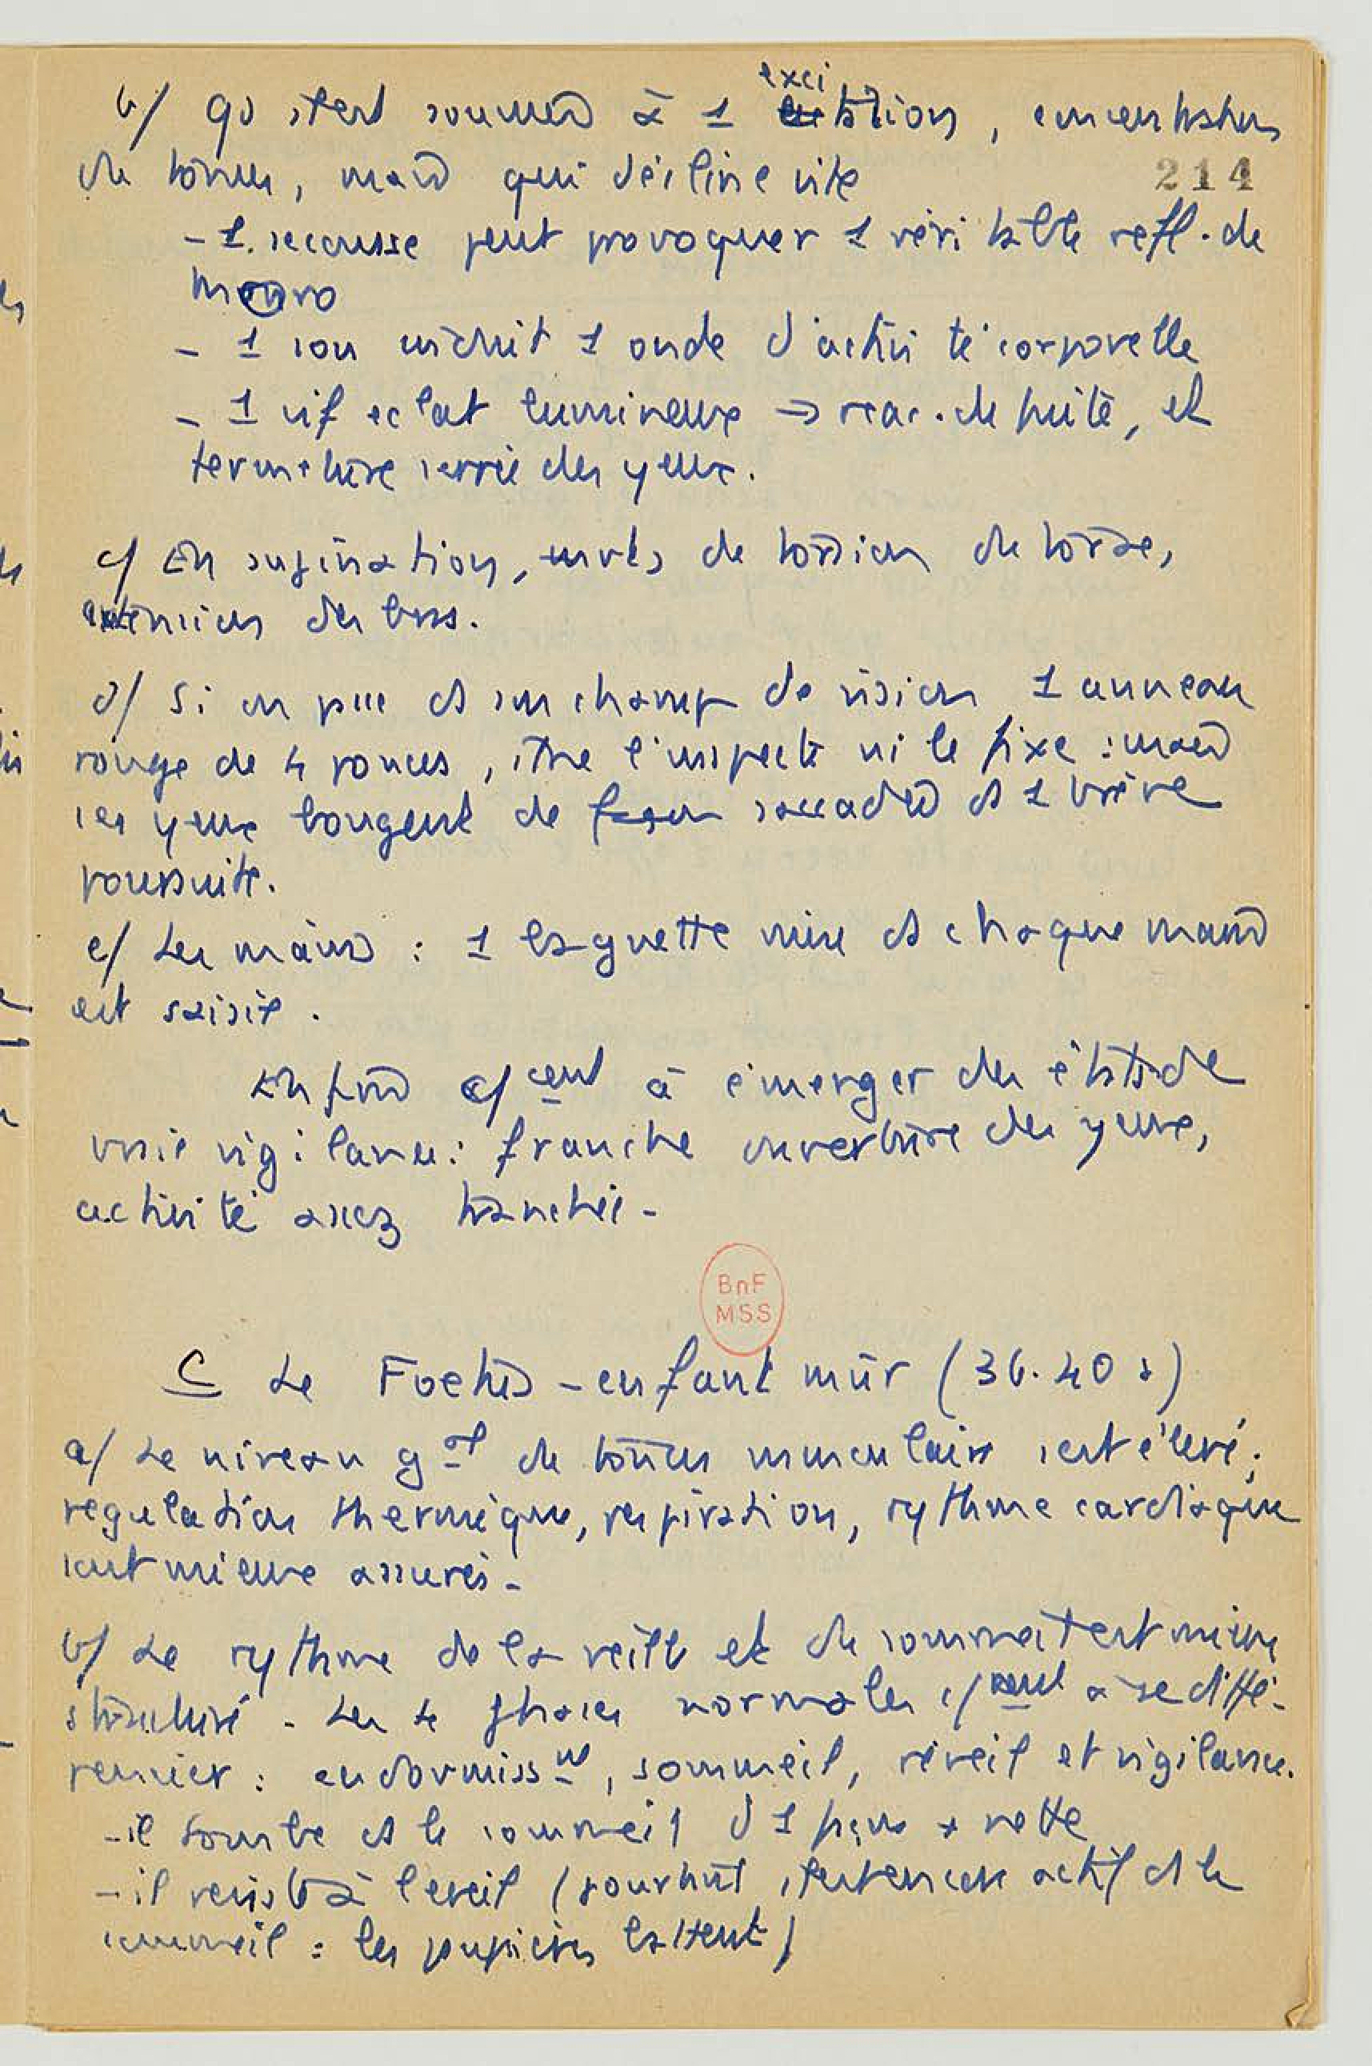 b/ qd il est soumis à 1 excitation, concentration
214
du tonus, mais qui décline vite
- 1 secousse peut provoquer 1 véritable refl. de
Moro
- 1 son induit 1 onde d'activité corporelle
- 1 vif eclat lumineux → reac. de fuite, et
fermeture serrée des yeux.
c/ En supination, mvts de torsion du torse,
extension des bras.
d/ Si on place ds son champ de vision 1 anneau
rouge de 4 pouces, il ne l'inspecte ni le fixe : mais
ses yeux bougent de façon saccadée ds 1 brève
poursuite.
e/ Les mains : 1 baguette mise ds chaque main
est saisie.
Enfin c/ cent à émerger des états de
vraie vigilance : franche ouverture des yeux,
activité assez tranchée.
BnF
MSS
C Le Foetus-enfant mûr (36.40 s)
a/ Le niveau gal du tonus musculaire s'est élevé ;
régulation thermique, respiration, rythme cardiaque
sont mieux assurés.
b/ Le rythme de la veille et du sommeil est mieux
structuré. Les 4 phases normales c/ cent à se diffé-
rencier : endormisst, sommeil, réveil et vigilance.
- il tombe ds le sommeil d'1 façon + nette
- il résiste à l'éveil (pourtant, il est encore actif ds le
sommeil : les paupières battent)